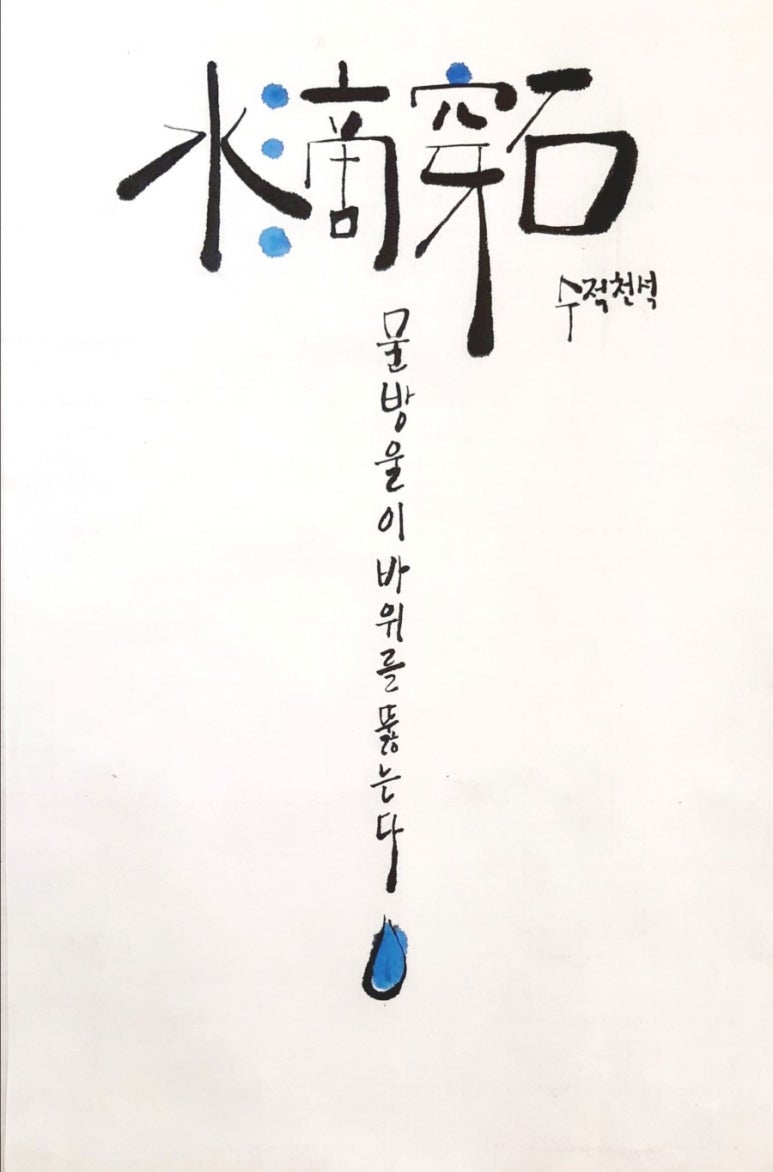 水滴穿石
수적천석
물방울이바위를뚫는다